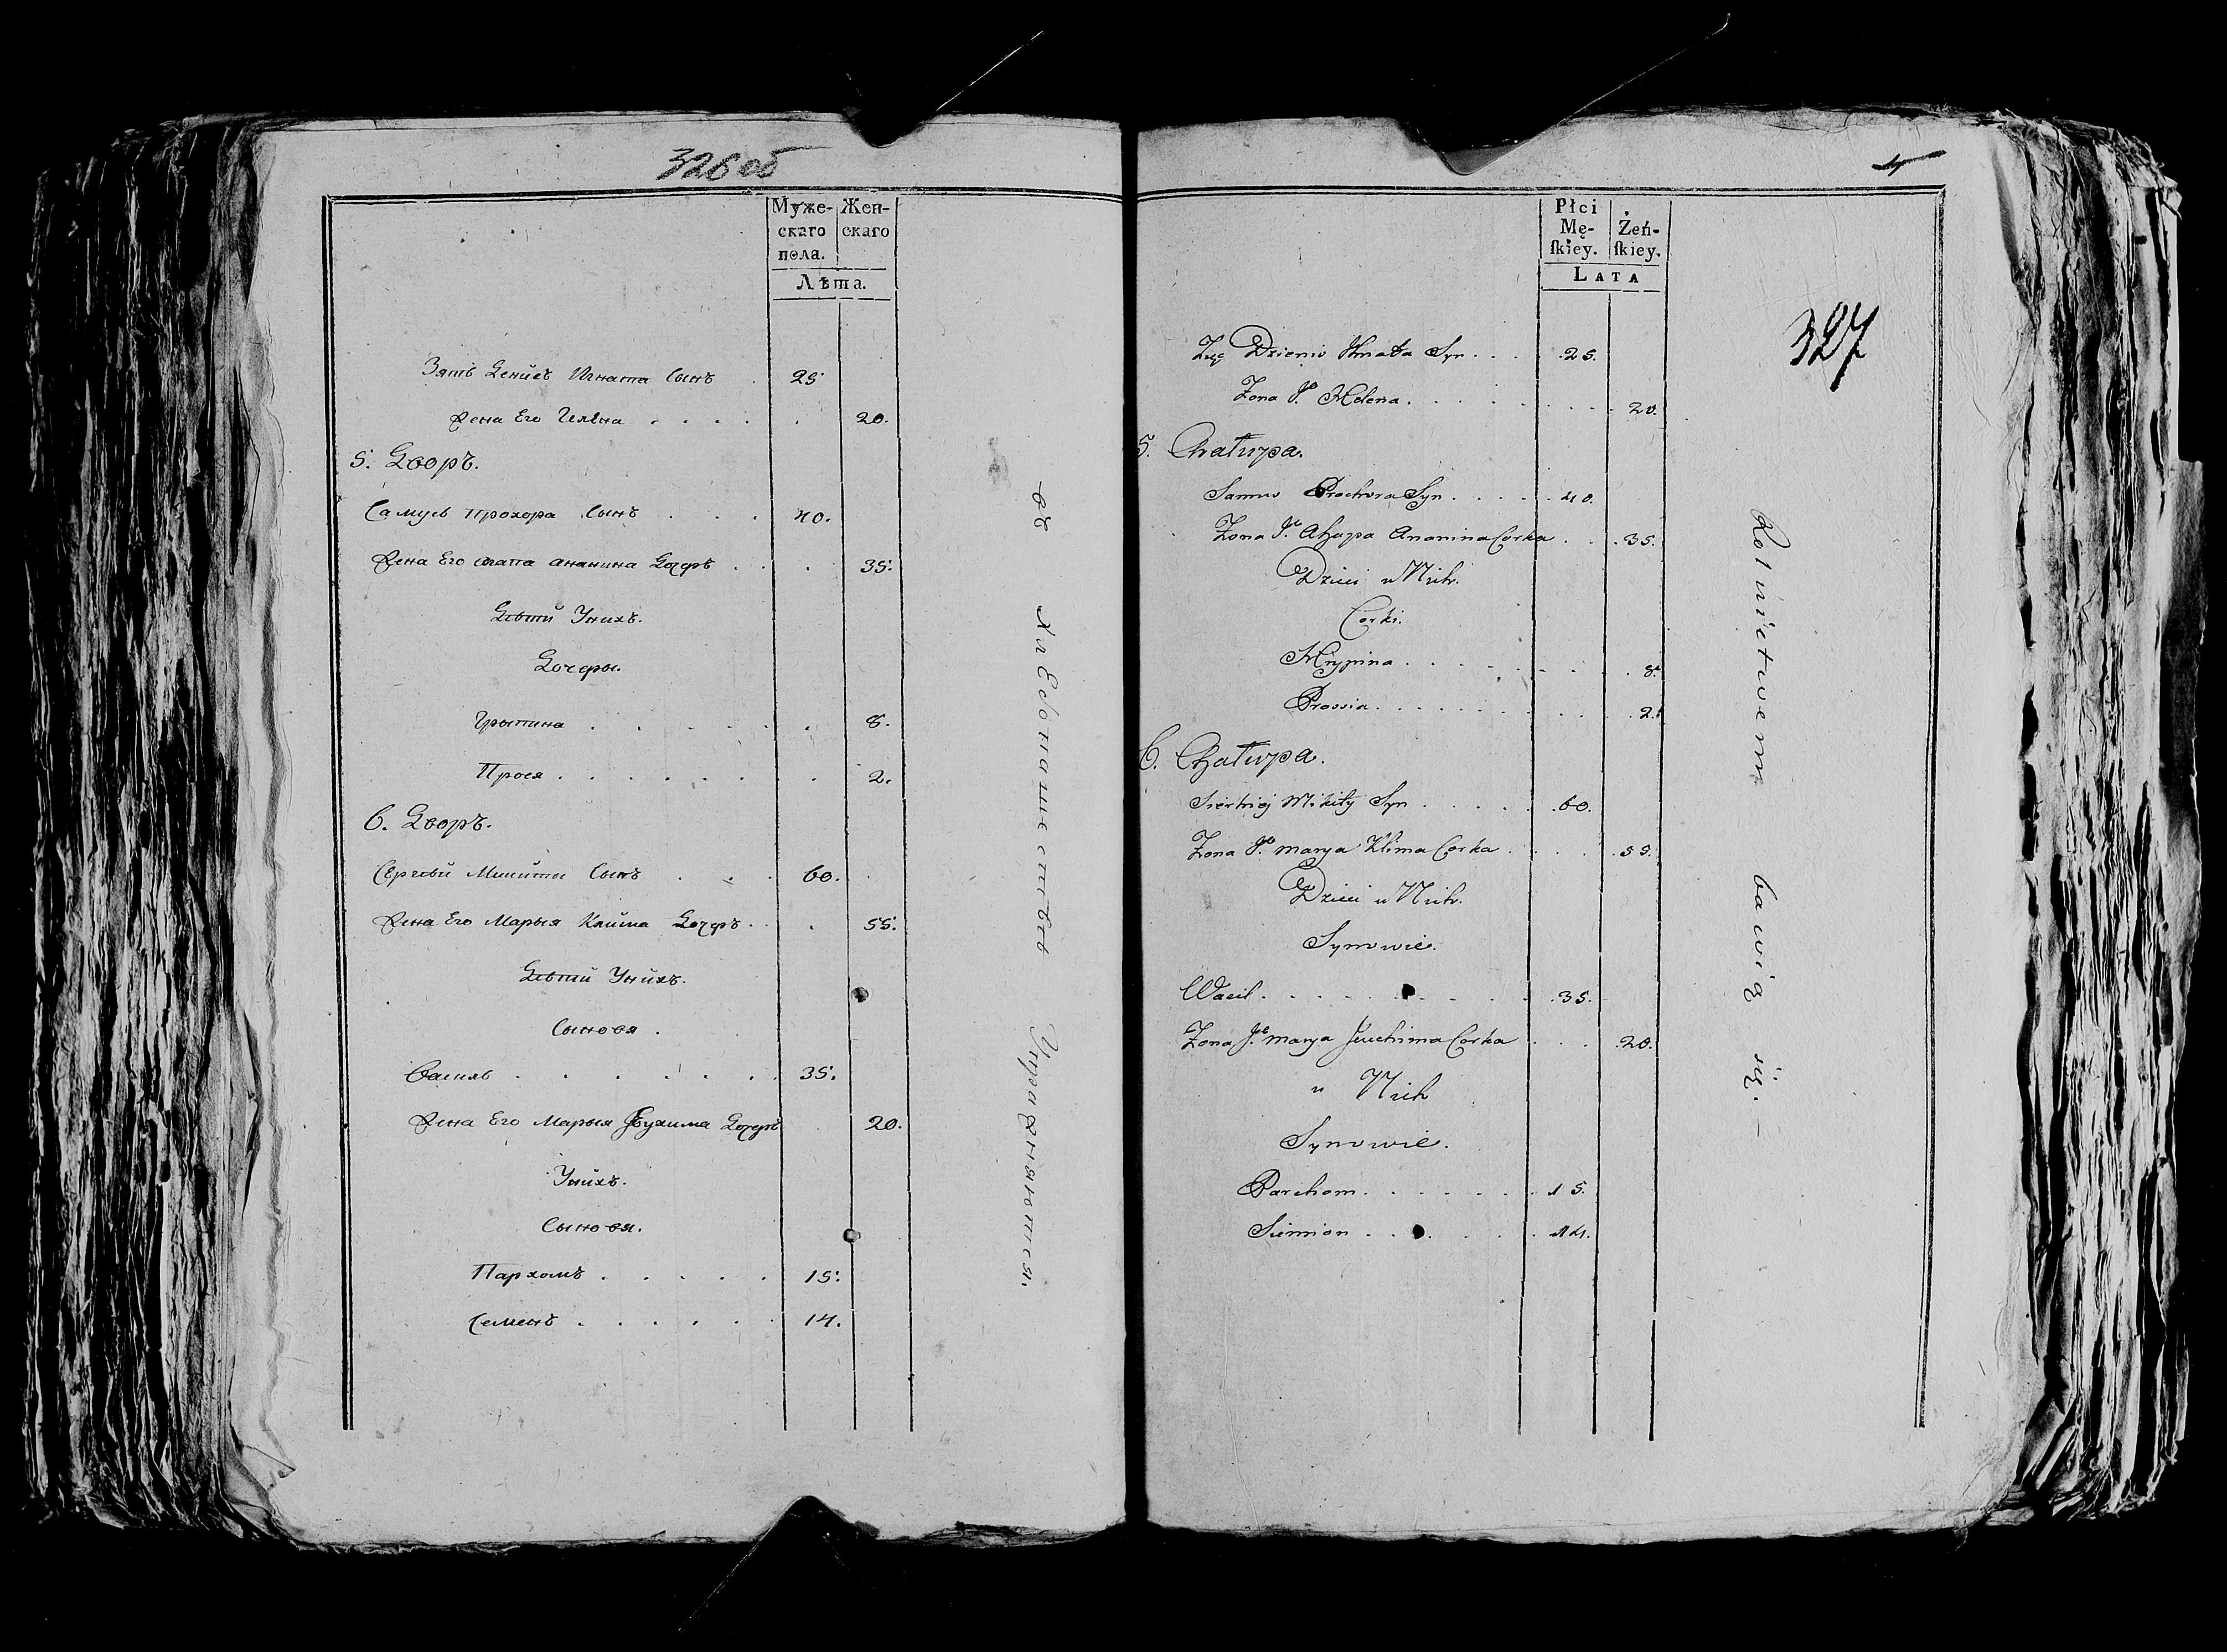 326 об
Муже-
скаго
пола.
Жен-
скаго
Лѣта.
Зять Денисъ Игната Сынъ . 25
Жена Его Гелѣна . . . . 20.
5. Дворъ.
Самусь Прохора Сынъ . . . 40.
Жена Его Агапа Ананина Дочерь . . 35.
Дѣти Унихъ.
Дочеры.
Грыпина . . . . . 8.
Прося . . . . . . . . 2.
6. Дворъ.
Сергѣй Микиты Сынъ . . . 60.
Жена Его Марыя Клима Дочерь . . 55.
Дѣти Унихъ.
Сыновя .
Василь . . . . . . . 35.
Жена Его Марыя Евхима Дочерь 20.
Унихъ.
Сыновя.
Пархомъ . . . . . 15.
Семенъ . . . . . . 14.
въ Хлебопашествѣ Упражняются.
4
327
Płci
Mę-
ſkiey.
Żeń-
ſkiey.
LATA
Zięć Dzienis Hnata Syn . . . 25.
Żona Jº Helena . . . . . . . 20.
5. Chałupa.
Samuś Prochora Syn . . . . . 40.
Żona Jº Ahapa Ananina Corka . . 35.
Dzieci u Nich.
Corki.
Hrypina . . . . . . 8.
Prosia . . . . . . . . 2.
6. Chałupa.
Sierhiej Mikity Syn . . . . . 60.
Żona Jº Marya Klima Corka . . . 55.
Dzieci u Nich.
Synowie.
Wasil . . . . . . . . 35.
Żona Jº Marya Jeuchima Corka . . . 20.
u Nich
Synowie.
Parchom . . . . . . . 15.
Siemion . . . . . . 14.
Rolnictwem bawią się. —